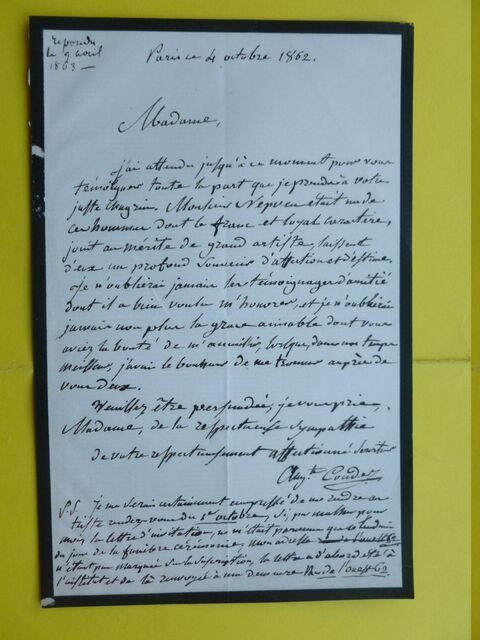 repondu
le 9 avril
1863 —
Paris ce 4 octobre 1862.
Madame,
j'ai attendu jusqu'à ce moment pour vous
témoigner toute la part que je prends à votre
juste chagrin. Monsieur Nepveu était un de
ces hommes dont le franc et loyal caractère,
joint au mérite de grand artiste, laissent
d'eux un profond souvenir d'affection et d'estime.
Je n'oublierai jamais les témoignages d'amitié
dont il a bien voulu m'honorer, et je n'oublierai
jamais non plus la grace aimable dont vous
aviez la bonté de m'accueillir, lorsque, dans un temps
meilleur, j'avais le bonheur de me trouver auprès de
vous deux.
Veuillez être persuadée, je vous prie,
Madame, de la respectueuse sympathie
de votre respectueusement affectionné serviteur
Augte Couder
P.S. Je me serais certainement empressé de me rendre au
triste rendez-vous du 1er octobre, si, par malheur pour
moi, la lettre d'invitation, ne m'était parvenue que le lendemain
du jour de la funèbre cérémonie, mon adresse rue de l'ouest 62
n'étant pas marquée sur la suscription, la lettre a d'abord été à
l'institut et de là renvoyée à ma demeure Rue de l'ouest 62.